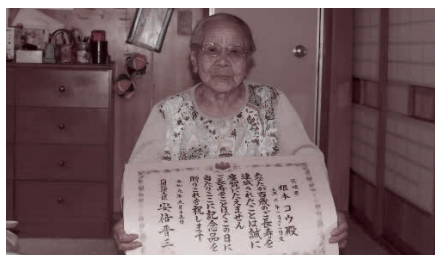 根本 コウ殿
あなたが百歳のご長寿を
達成されたことは誠に
慶賀にたえません
ご長寿をことほぐこの日に
当たりここに記念品を
贈りこれを祝します
内閣総理大臣 安倍晋三